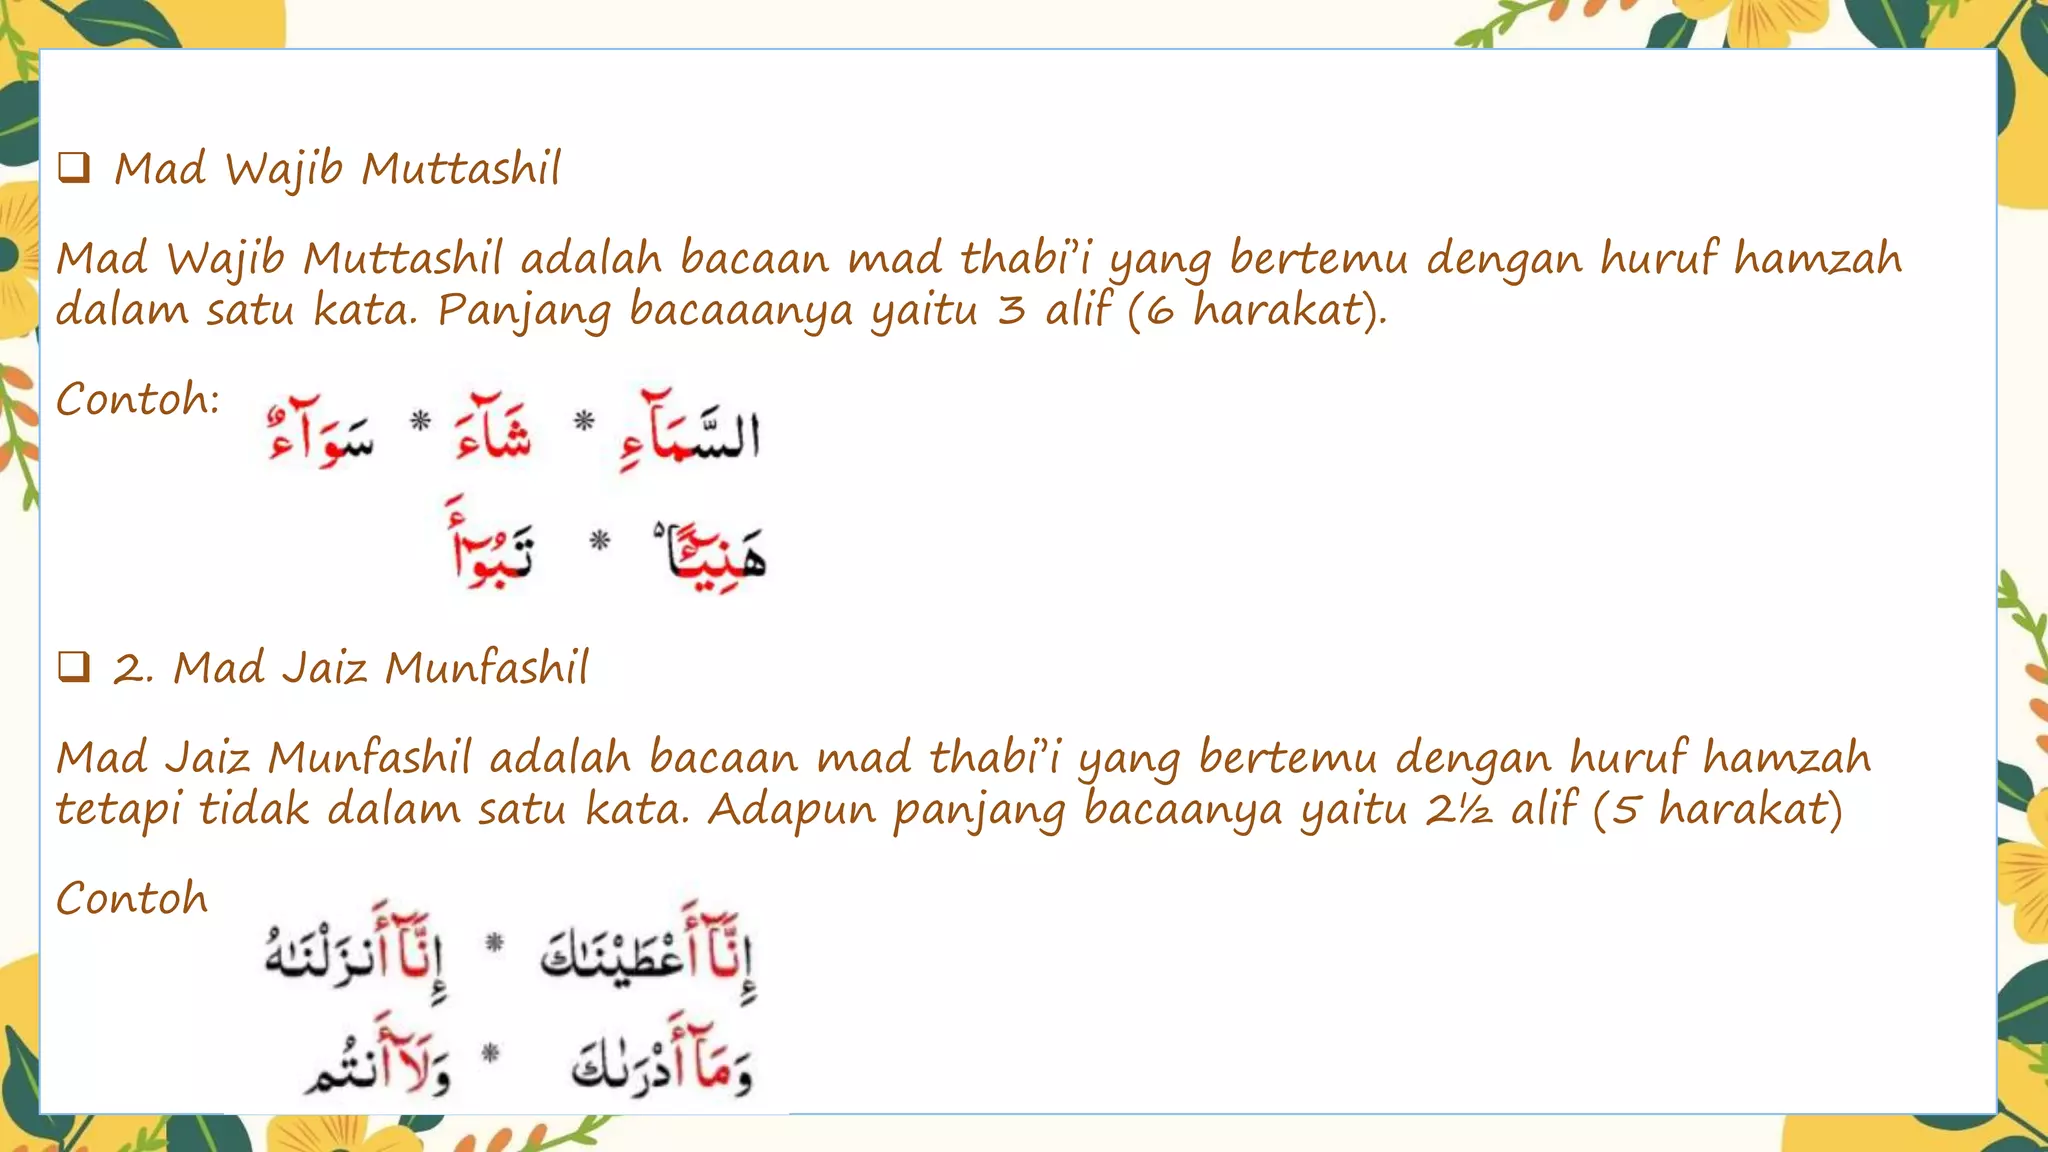 ❑ Mad Wajib Muttashil
Mad Wajib Muttashil adalah bacaan mad thabi’i yang bertemu dengan huruf hamzah
dalam satu kata. Panjang bacaaanya yaitu 3 alif (6 harakat).
Contoh:
السَّمَآءِ * شَآءَ * سَوَآءٌ
هَنِيٓـًٔا ۢ * تَبُوٓأَ
❑ 2. Mad Jaiz Munfashil
Mad Jaiz Munfashil adalah bacaan mad thabi’i yang bertemu dengan huruf hamzah
tetapi tidak dalam satu kata. Adapun panjang bacaanya yaitu 2½ alif (5 harakat)
Contoh
إِنَّآ أَعْطَيْنَٰكَ * إِنَّآ أَنزَلْنَٰهُ
وَمَآ أَدْرَىٰكَ * وَلَآ أَنتُم